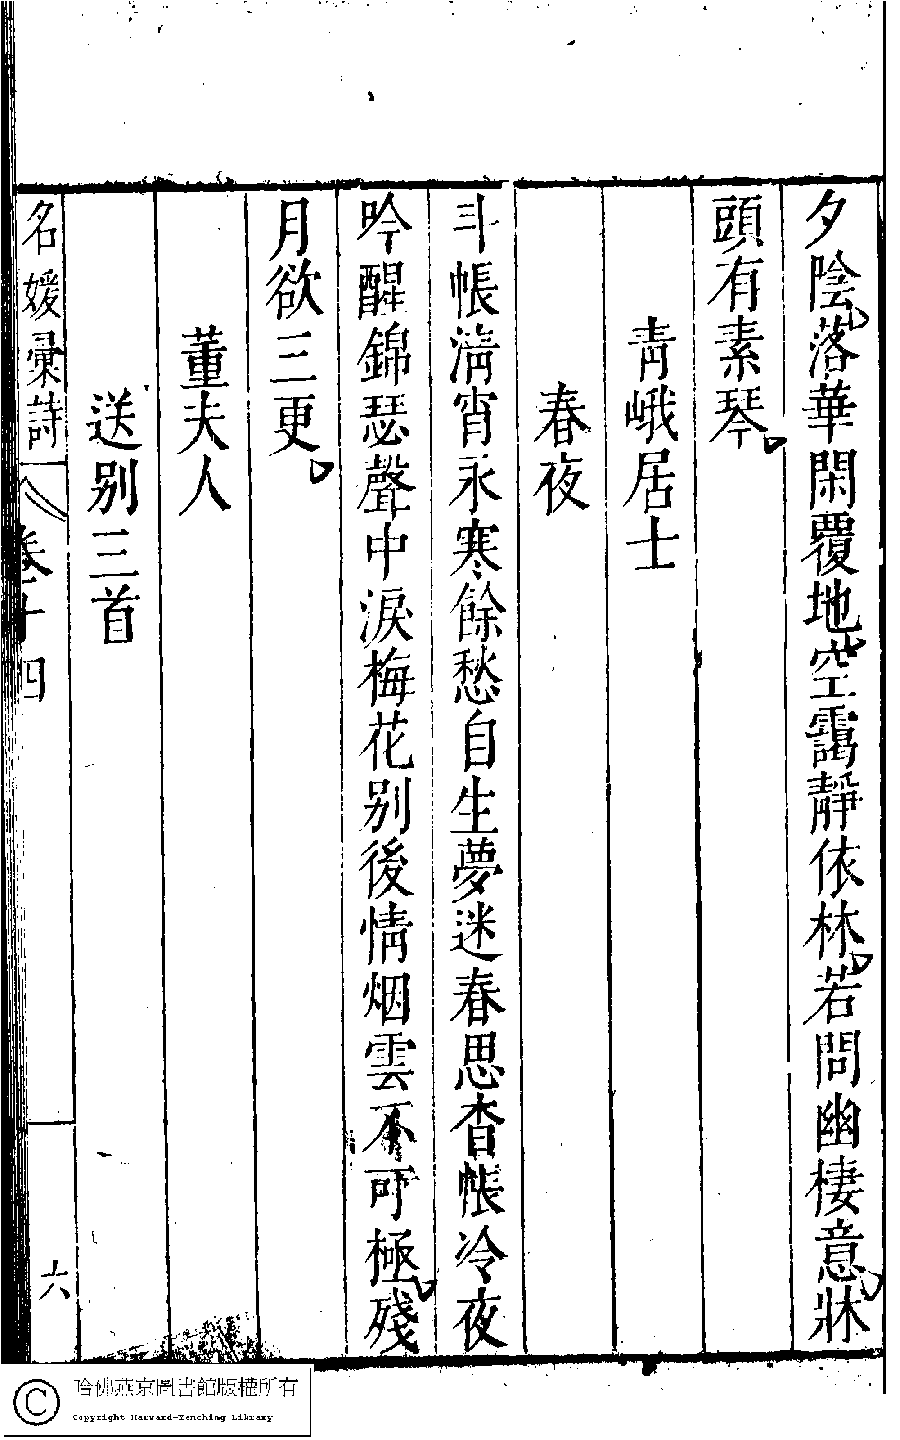 夕陰落華閑覆地空靄靜依林若問幽棲意牀
頭有素琴
青峨居士
春夜
斗帳淸宵永寒餘愁自生夢迷春思杳帳冷夜
吟醒錦瑟聲中淚梅花別後情烟雲不可極殘
月欲三更
董夫人
送別三首
名媛彙詩
卷十四
六
哈佛燕京圖書館版權所有
Copyright Harvard-Yenching Library